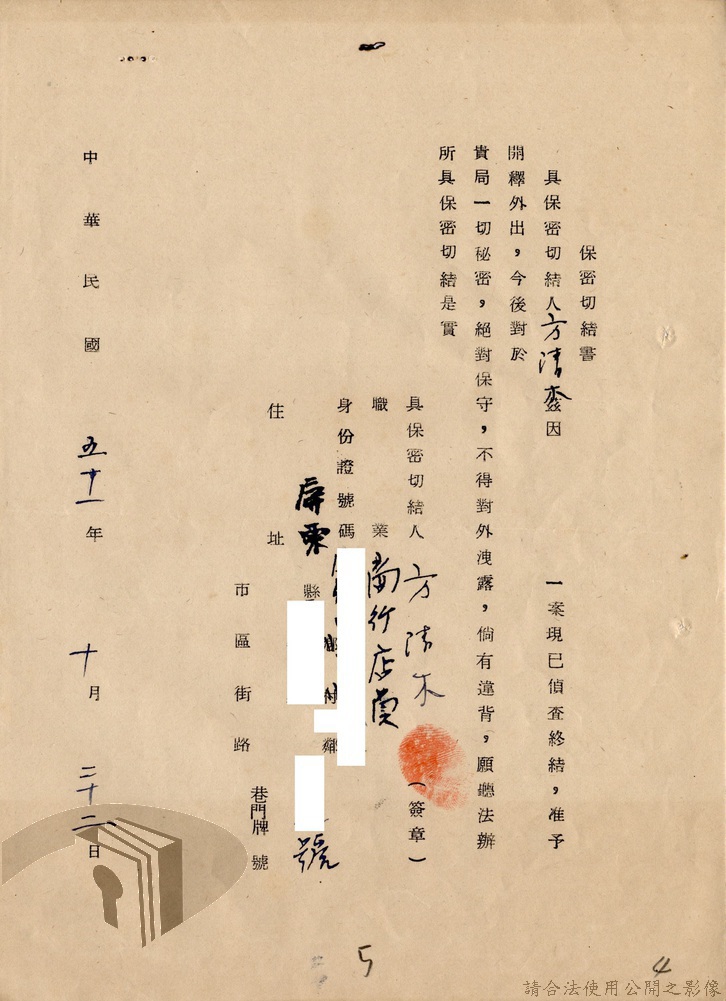 保密切結書
具保密切結人方清杰茲因 一案現已偵查終結，准予
開釋外出，今後對於
貴局一切秘密，絕對保守，不得對外洩露，倘有違背，願聽法辦
所具保密切結是實
具保密切結人方清木（簽章）
職業商行店員
身份證號碼
住址屏東縣 鄉 號
市區街路巷門牌號
中華民國五十一年十月二十二日
5
4
請合法使用公開之影像